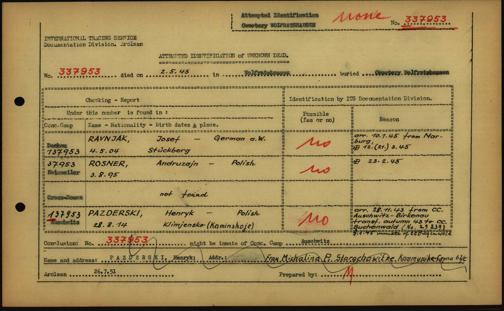 Attempted Identification
Cemetery WOLFRATSHAUSEN
none
No. 337953
INTERNATIONAL TRACING SERVICE
Documentation Division, Arolsen
ATTEMPTED IDENTIFICATION of UNKNOWN DEAD.
No. 337953 died on 2.5.45 in Wolfratshausen buried Cemetery Wolfratshausen
Checking - Report
Identification by ITS Documentation Division.
Under this number is found in:
Possible (Yes or no)
Reason
Conc.Camp Name - Nationality - birth dates & place.
Dachau
137953
RAVNJAK, Josef - German a.W.
4.5.04 Stückberg
no
arr. 10.1.45 from Natzweiler
37953
Natzweiler
ROSNER, Andruzajn - Polish
3.8.95
no
23.2.45
Gross-Rosen
not found
137953
Auschwitz
PAZDERSKI, Henryk - Polish
28.8.14 Klimjenske (Kaminskoje)
no
arr. 28.11.43 from CC.
Auschwitz-Birkenau
transf. autumn 43 to CC.
Buchenwald (No. 29239)
Conclusion: No. 337953 might be inmate of Conc. Camp Auschwitz
Name and address: PAZDERSKI, Henryk; Addr.: Frau Michalina P. Starachowitze
Arolsen 26.7.51
Prepared by: